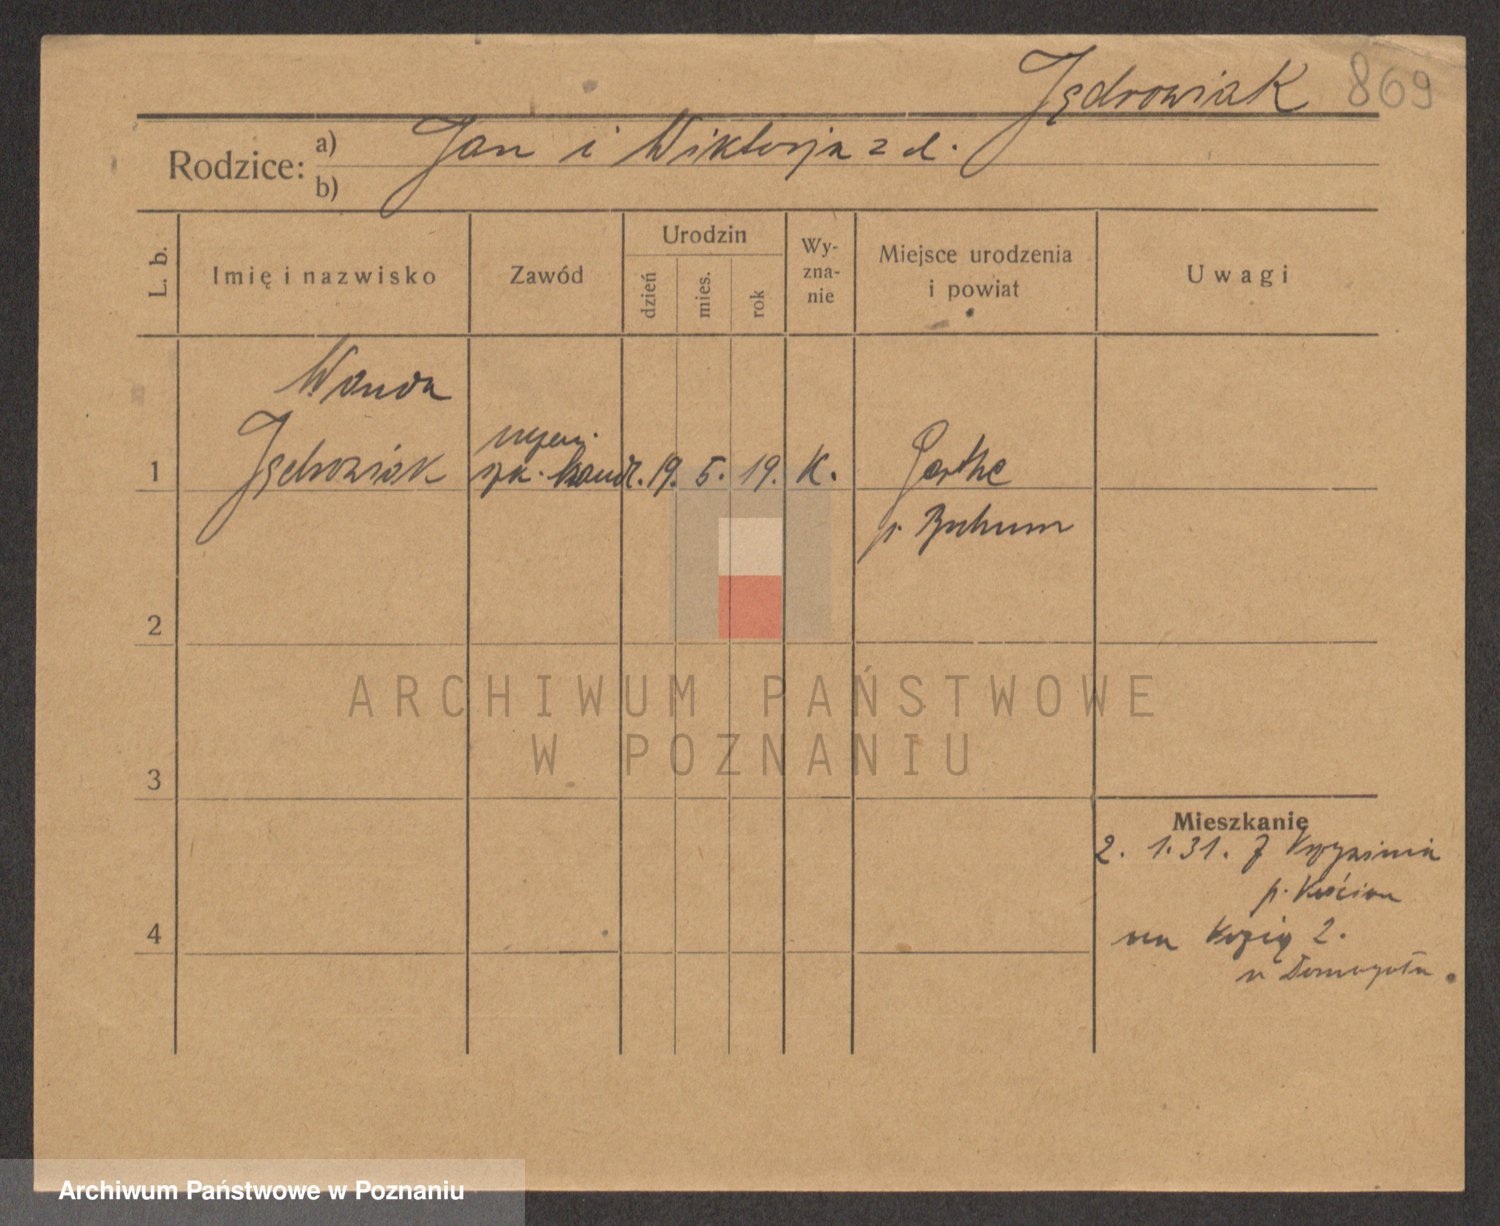 Jędrowiak 869
Rodzice: a) Jan i Wiktorja z d.
b)
L. b.
Imię i nazwisko
Zawód
Urodzin
dzień
mies.
rok
Wy-
zna-
nie
Miejsce urodzenia
i powiat
Uwagi
Wanda
1 Jędrowiak
uczen.
szk. handl. 19. 5. 19. K. Gerthe
p. Bochum
2
3
4
Mieszkanie
2. 1. 31. z
p. Kościan
na Kozią 2.
u
ARCHIWUM PAŃSTWOWE
W POZNANIU
Archiwum Państwowe w Poznaniu